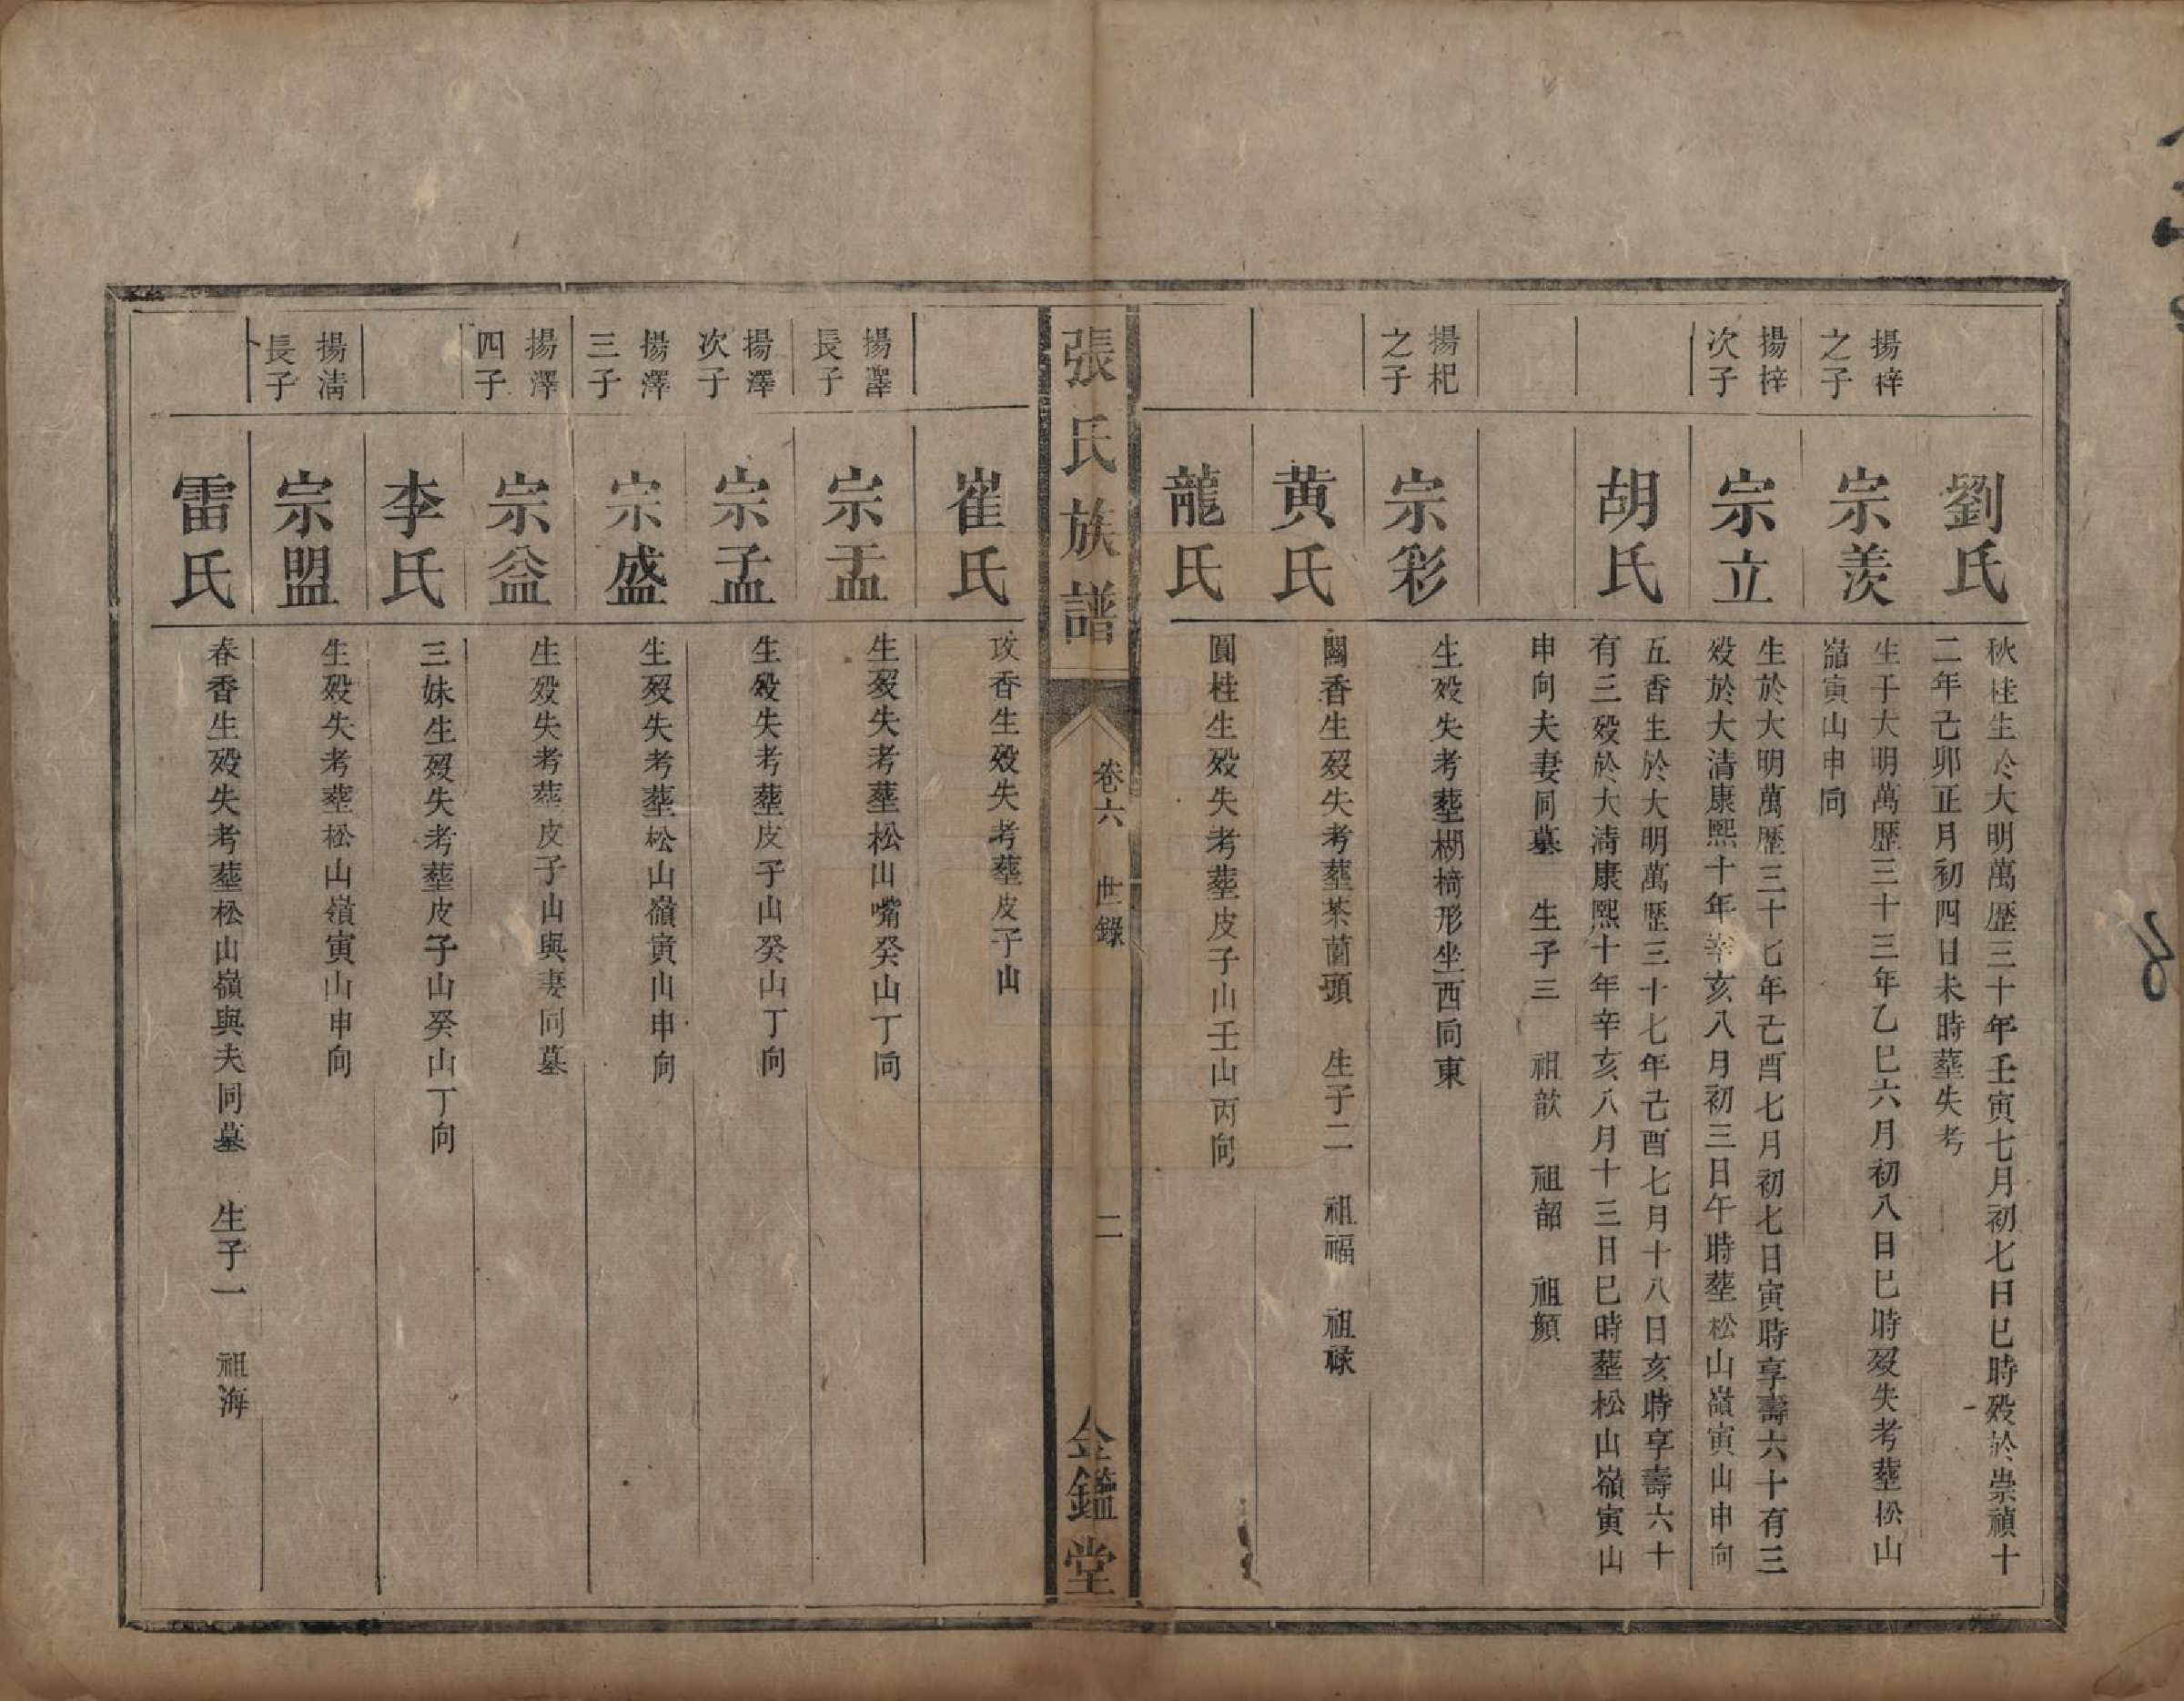 劉氏
秋桂生於大明萬歷三十年壬寅七月初七日巳時殁於崇禎十
二年己卯正月初四日未時塟失考
揚梓
之子
宗羨
生于大明萬歷三十三年乙巳六月初八日巳時殁失考塟松山
嵓寅山申向
揚梓
次子
宗立
生於大明萬歷三十七年己酉七月初七日寅時享壽六十有三
殁於大清康熙十年辛亥八月初三日午時塟松山嶺寅山申向
胡氏
五香生於大明萬歷三十七年己酉七月十八日亥時享壽六十
有三殁於大清康熙十年辛亥八月十三日巳時塟松山嶺寅山
申向夫妻同墓 生子三 祖歆 祖韶 祖顏
揚杞
之子
宗彩
生殁失考塟棚椅形坐西向東
黃氏
閨香生殁失考塟茶薗頭 生子二 祖福 祖祿
龍氏
圓桂生殁失考塟皮子山壬山丙向
張氏族譜
卷六 世錄
二
金鑑堂
崔氏
攻香生殁失考塟皮子山
揚澤
長子
宗盂
生殁失考塟松山嘴癸山丁向
揚澤
次子
宗孟
生殁失考塟皮子山癸山丁向
揚澤
三子
宗盛
生殁失考塟松山嶺寅山申向
揚澤
四子
宗益
生殁失考塟皮子山與妻同墓
李氏
三妹生殁失考塟皮子山癸山丁向
揚清
長子
宗盟
生殁失考塟松山嶺寅山申向
雷氏
春香生殁失考塟松山嶺與夫同墓 生子一 祖海